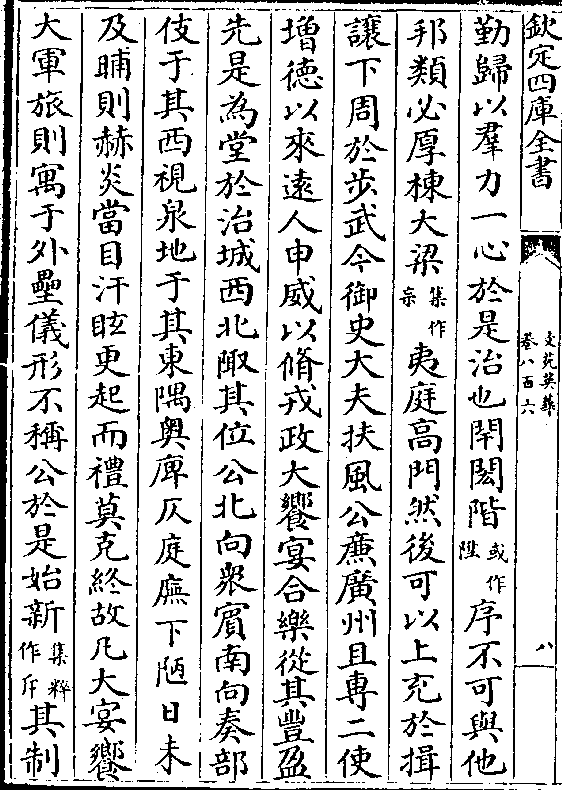 欽定四庫全書
文苑英華
卷八百六
八
勤歸以羣力一心於是治也閈閎階或作陛序不可與他
邦類必厚棟大梁集作㮰夷庭高門然後可以上充於揖
讓下周於步武今御史大夫扶風公廉廣州且專二使
增德以來遠人申威以脩戎政大饗宴合樂從其豐盈
先是為堂於治城西北陬其位公北向衆賓南向奏部
伎于其西視泉地于其東隅奥庳仄庭廡下陋日未
及晡則赫炎當目汗眩更起而禮莫克終故凡大宴饗
大軍旅則寓于外壘儀形不稱公於是始新集粹作斥其制